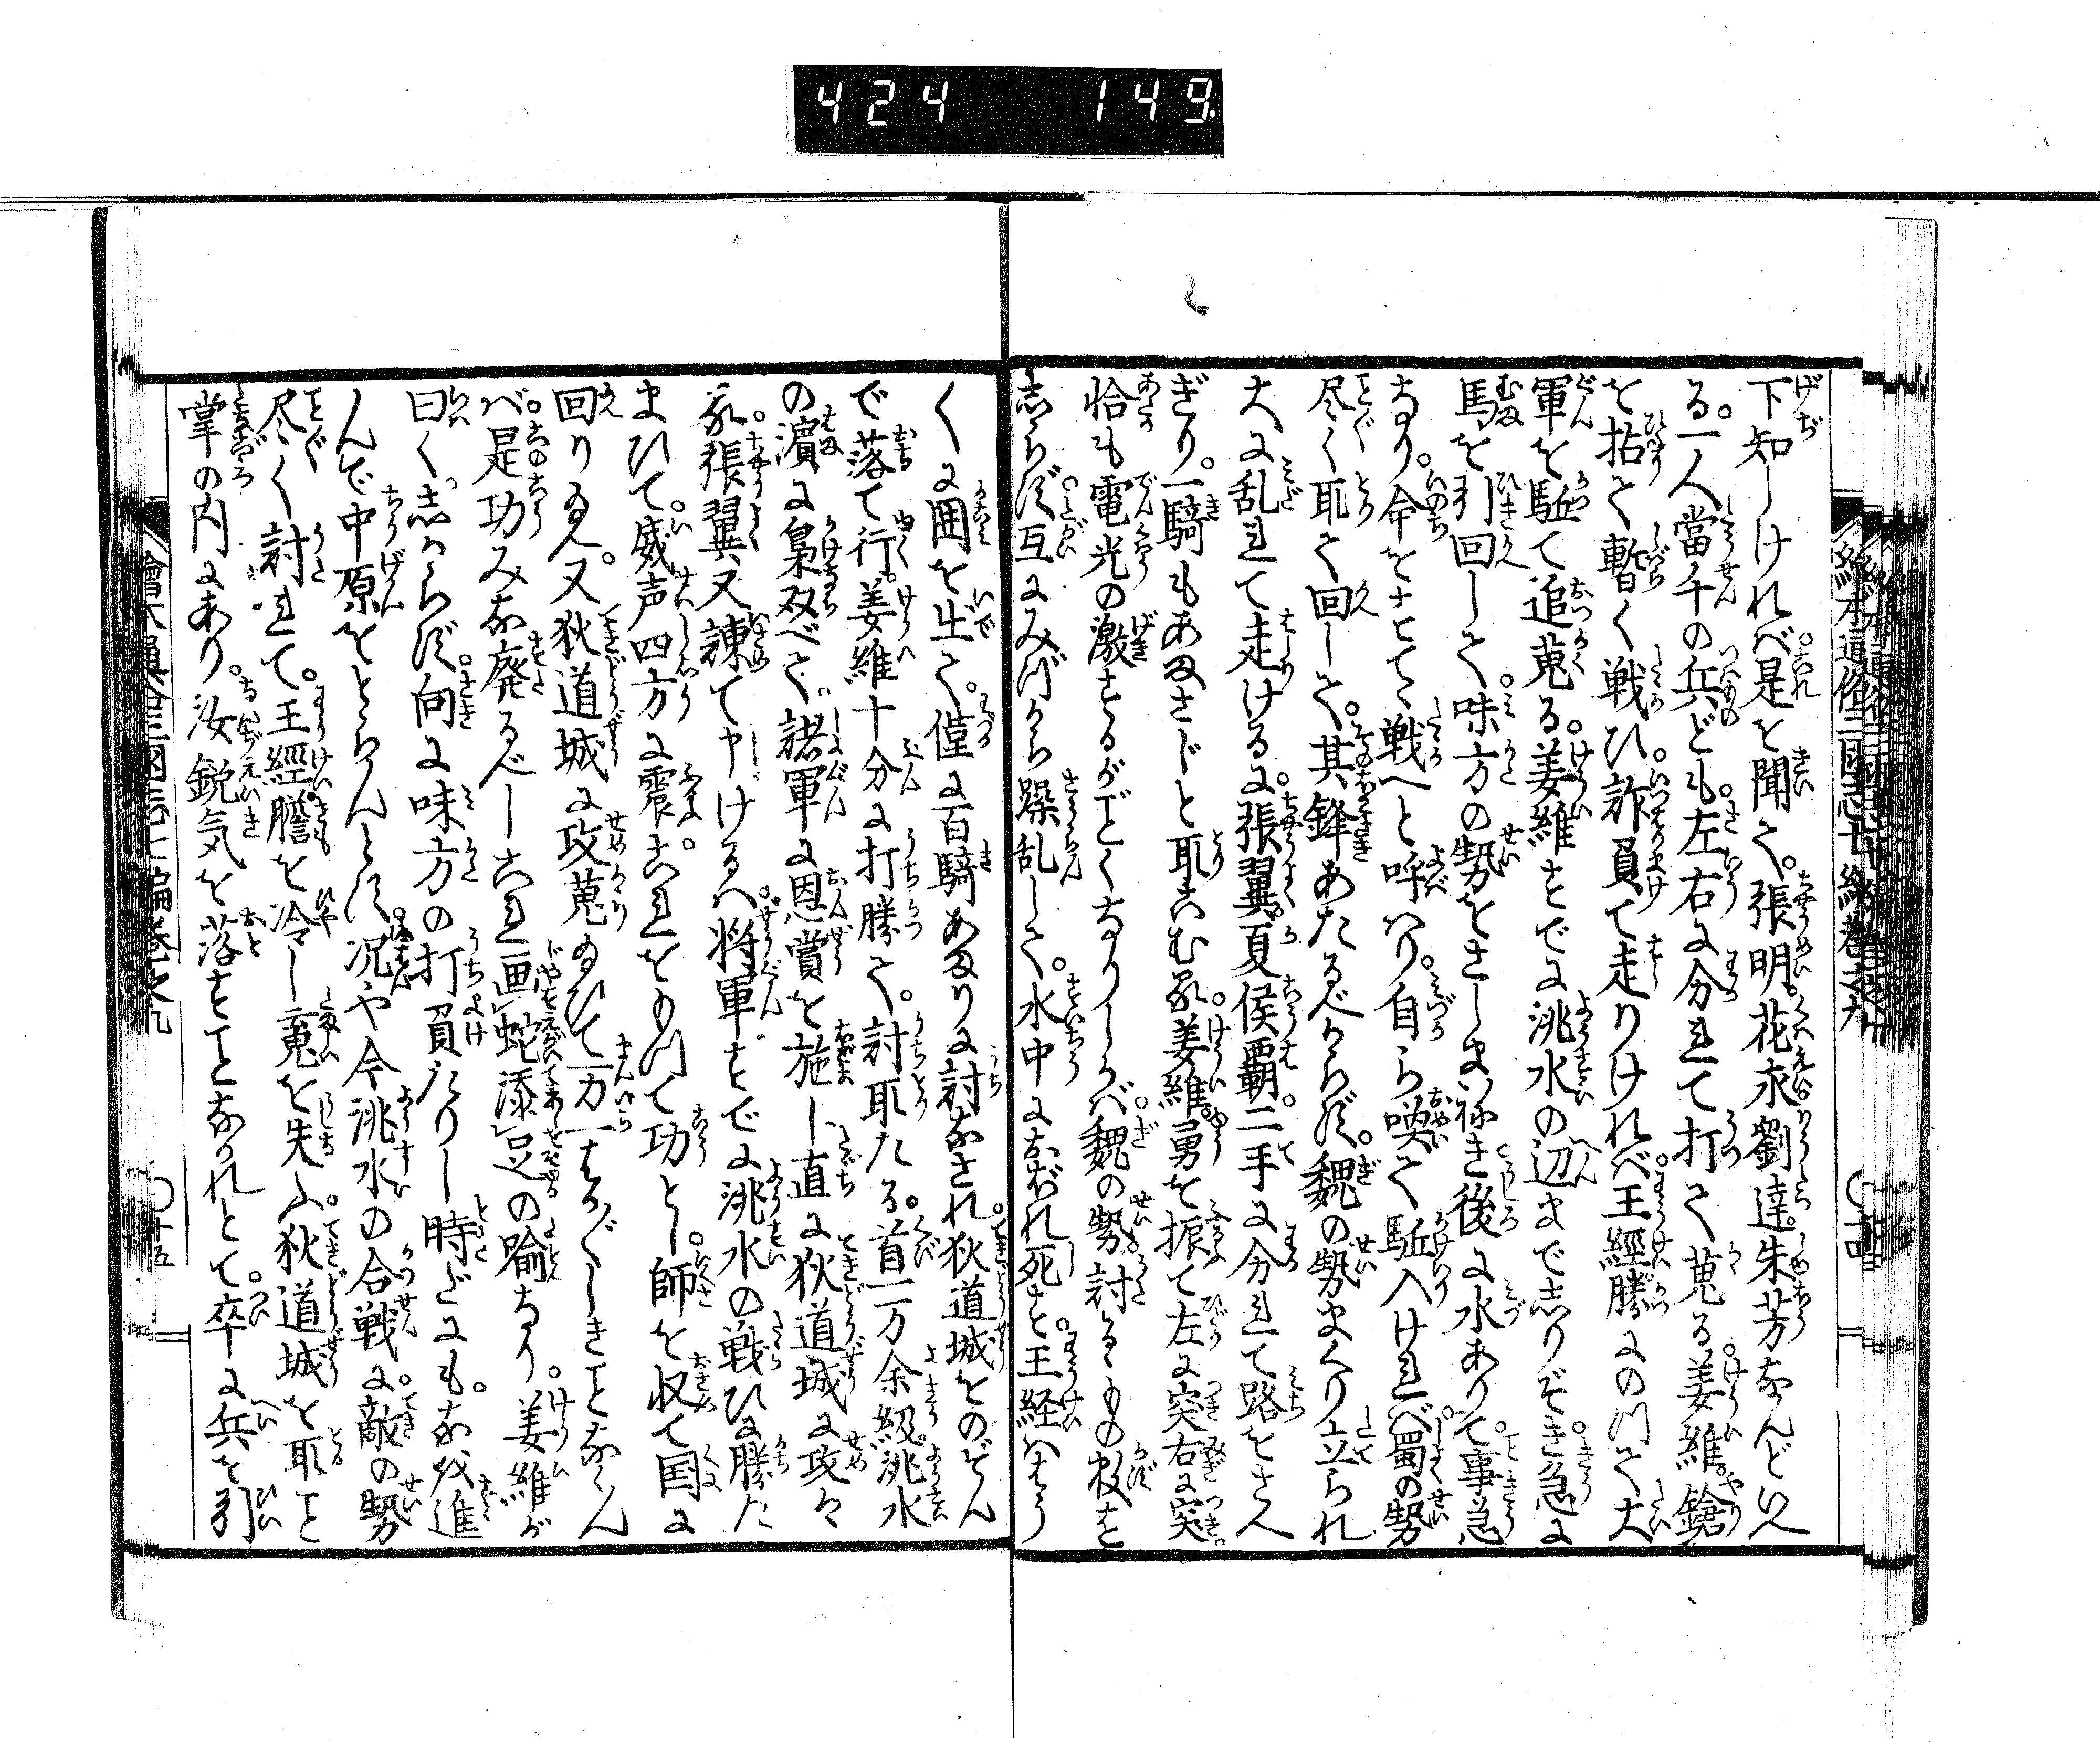 424 149
下知しければ是を聞て張明花永劉達朱芳なんどいへ
る一人當千の兵ども左右に分れて打て蒐る姜維鎗
を拈て暫く戦ひ詐負て走りければ王經勝にのつて大
軍を駈て追蒐る姜維すでに洮水の辺まで志りぞき急に
馬を引回して味方の勢をさしまねき後に水ありて事急
なり命をすてゝ戦へと呼はり自ら喚で駈入ければ蜀の勢
尽く取て回して其鋒あたるべからず魏の勢まくり立られ
大に乱れて走けるに張翼夏侯覇二手に分れて路をさへ
ぎり一騎もあまさじと取こむる姜維勇を振て左に突右に突
恰も電光の激するがごとくなりしかば魏の勢討るゝもの数を
志らず互にみづから躁乱して水中におぼれ死す王経ははう
くに囲を出て僅に百騎あまりに討なされ狄道城をのぞん
で落て行姜維十分に打勝て討取たる首一万余級洮水
の濵に梟双べて諸軍に恩賞を施し直に狄道城に攻ん
る張翼又諫て申けるハ将軍すでに洮水の戦ひに勝た
まひて威声四方に震これをもつて功とし師を収て国に
回りゐへ又狄道城に攻蒐ゐひて万一はかゞしきことなくん
ば是功みな廃るべしこれ画蛇添足の喩なり姜維が
曰く志からず向に味方の打負たりし時だにもなほ進
んで中原をとらんとす况や今洮水の合戦に敵の勢
尽く討れて王經膽を冷し䰟を失ふ狄道城を取こと
掌の内にあり汝鋭気を落すことなかれとて卒に兵を引
繪本通俗三國志七編巻之九
〇十五